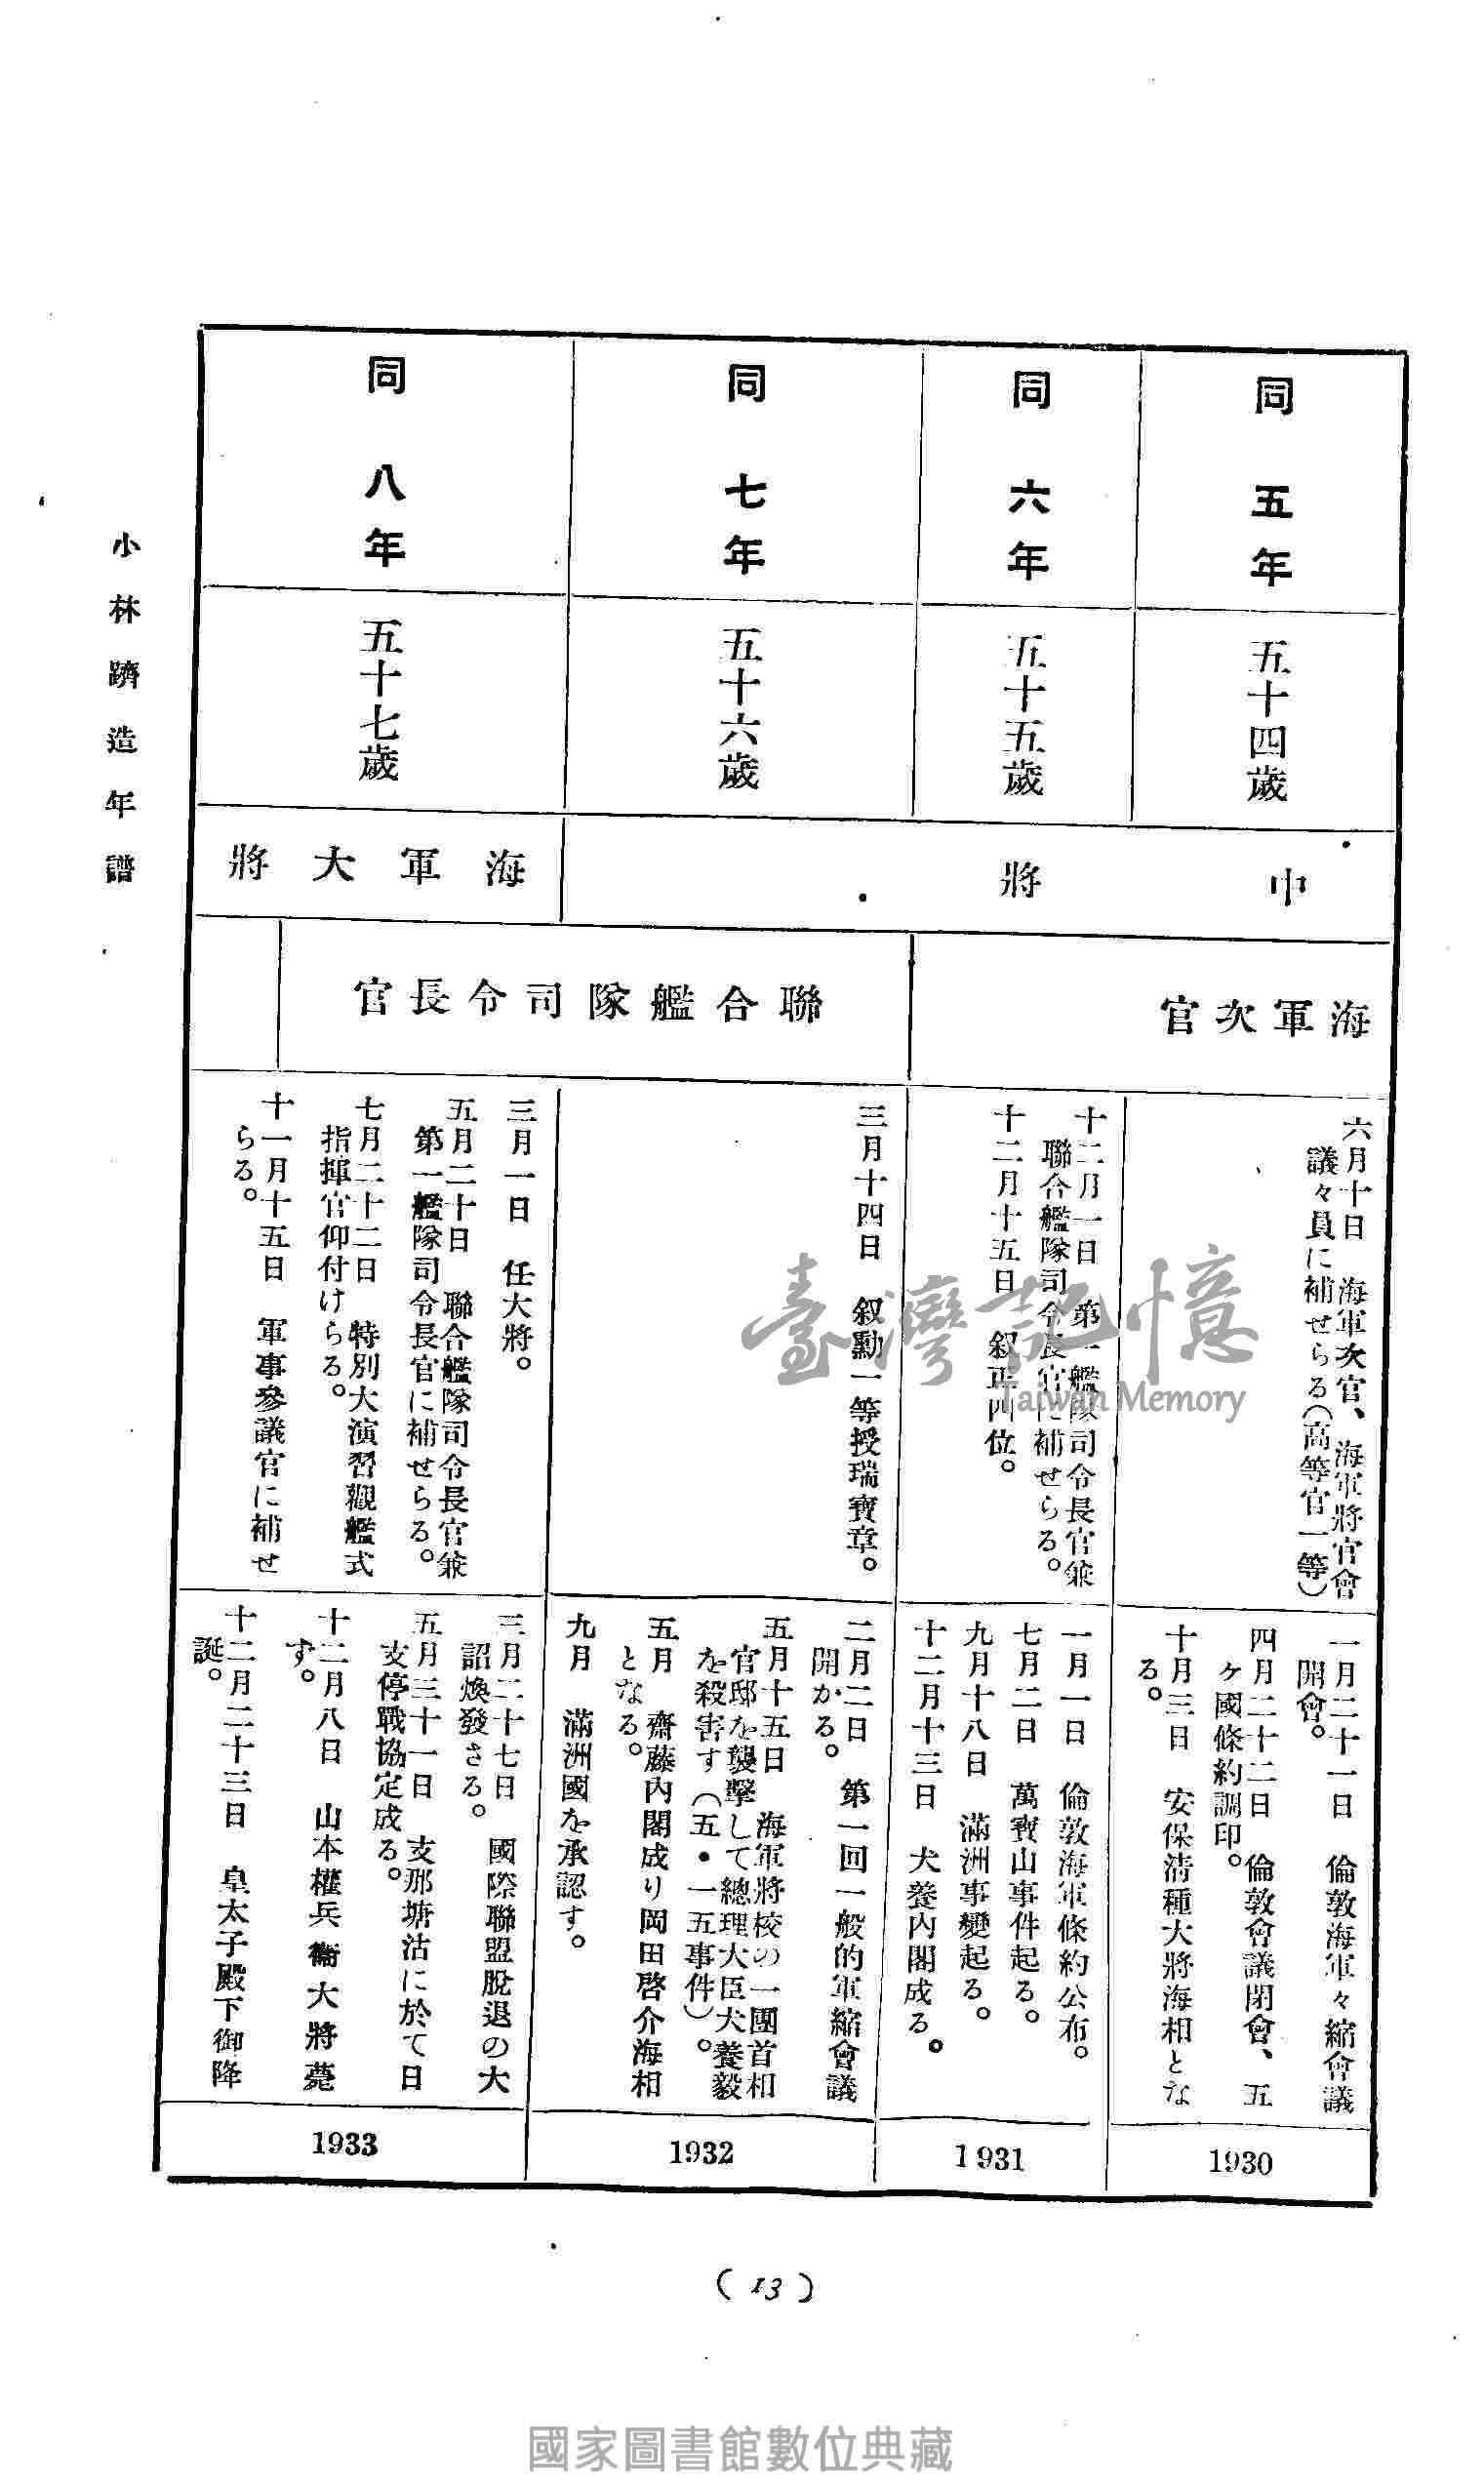 同五年
五十四歲
中將
海軍次官
六月十日　海軍次官、海軍將官會
議々員に補せらる(高等官一等)
一月二十一日　倫敦海軍々縮會議
開會。
四月二十二日　倫敦會議閉會、五
ヶ國條約調印。
十月三日　安保淸種大將海相とな
る。
1930
同六年
五十五歲
十二月一日　第一艦隊司令長官兼
聯合艦隊司令長官に補せらる。
十二月十五日　叙正四位。
一月一日　倫敦海軍條約公布。
七月二日　萬寶山事件起る。
九月十八日　滿洲事變起る。
十二月十三日　犬養內閣成る。
1931
同七年
五十六歲
聯合艦隊司令長官
三月十四日　叙勳一等授瑞寶章。
二月二日　第一回一般的軍縮會議
開かる。
五月十五日　海軍將校の一團首相
官邸を襲擊して總理大臣犬養毅
を殺害す(五・一五事件)。
五月　齋藤內閣成り岡田啓介海相
となる。
九月　滿洲國を承認す。
1932
同八年
五十七歲
海軍大將
三月一日　任大將。
五月二十日　聯合艦隊司令長官兼
第一艦隊司令長官に補せらる。
七月二十二日　特別大演習觀艦式
指揮官仰付けらる。
十一月十五日　軍事參議官に補せ
らる。
三月二十七日　國際聯盟脫退の大
詔煥發さる。
五月三十一日　支那塘沽に於て日
支停戰協定成る。
十二月八日　山本權兵衞大將薨
ず。
十二月二十三日　皇太子殿下御降
誕。
1933
小林躋造年譜
(13)
臺灣記憶
Taiwan Memory
國家圖書館數位典藏